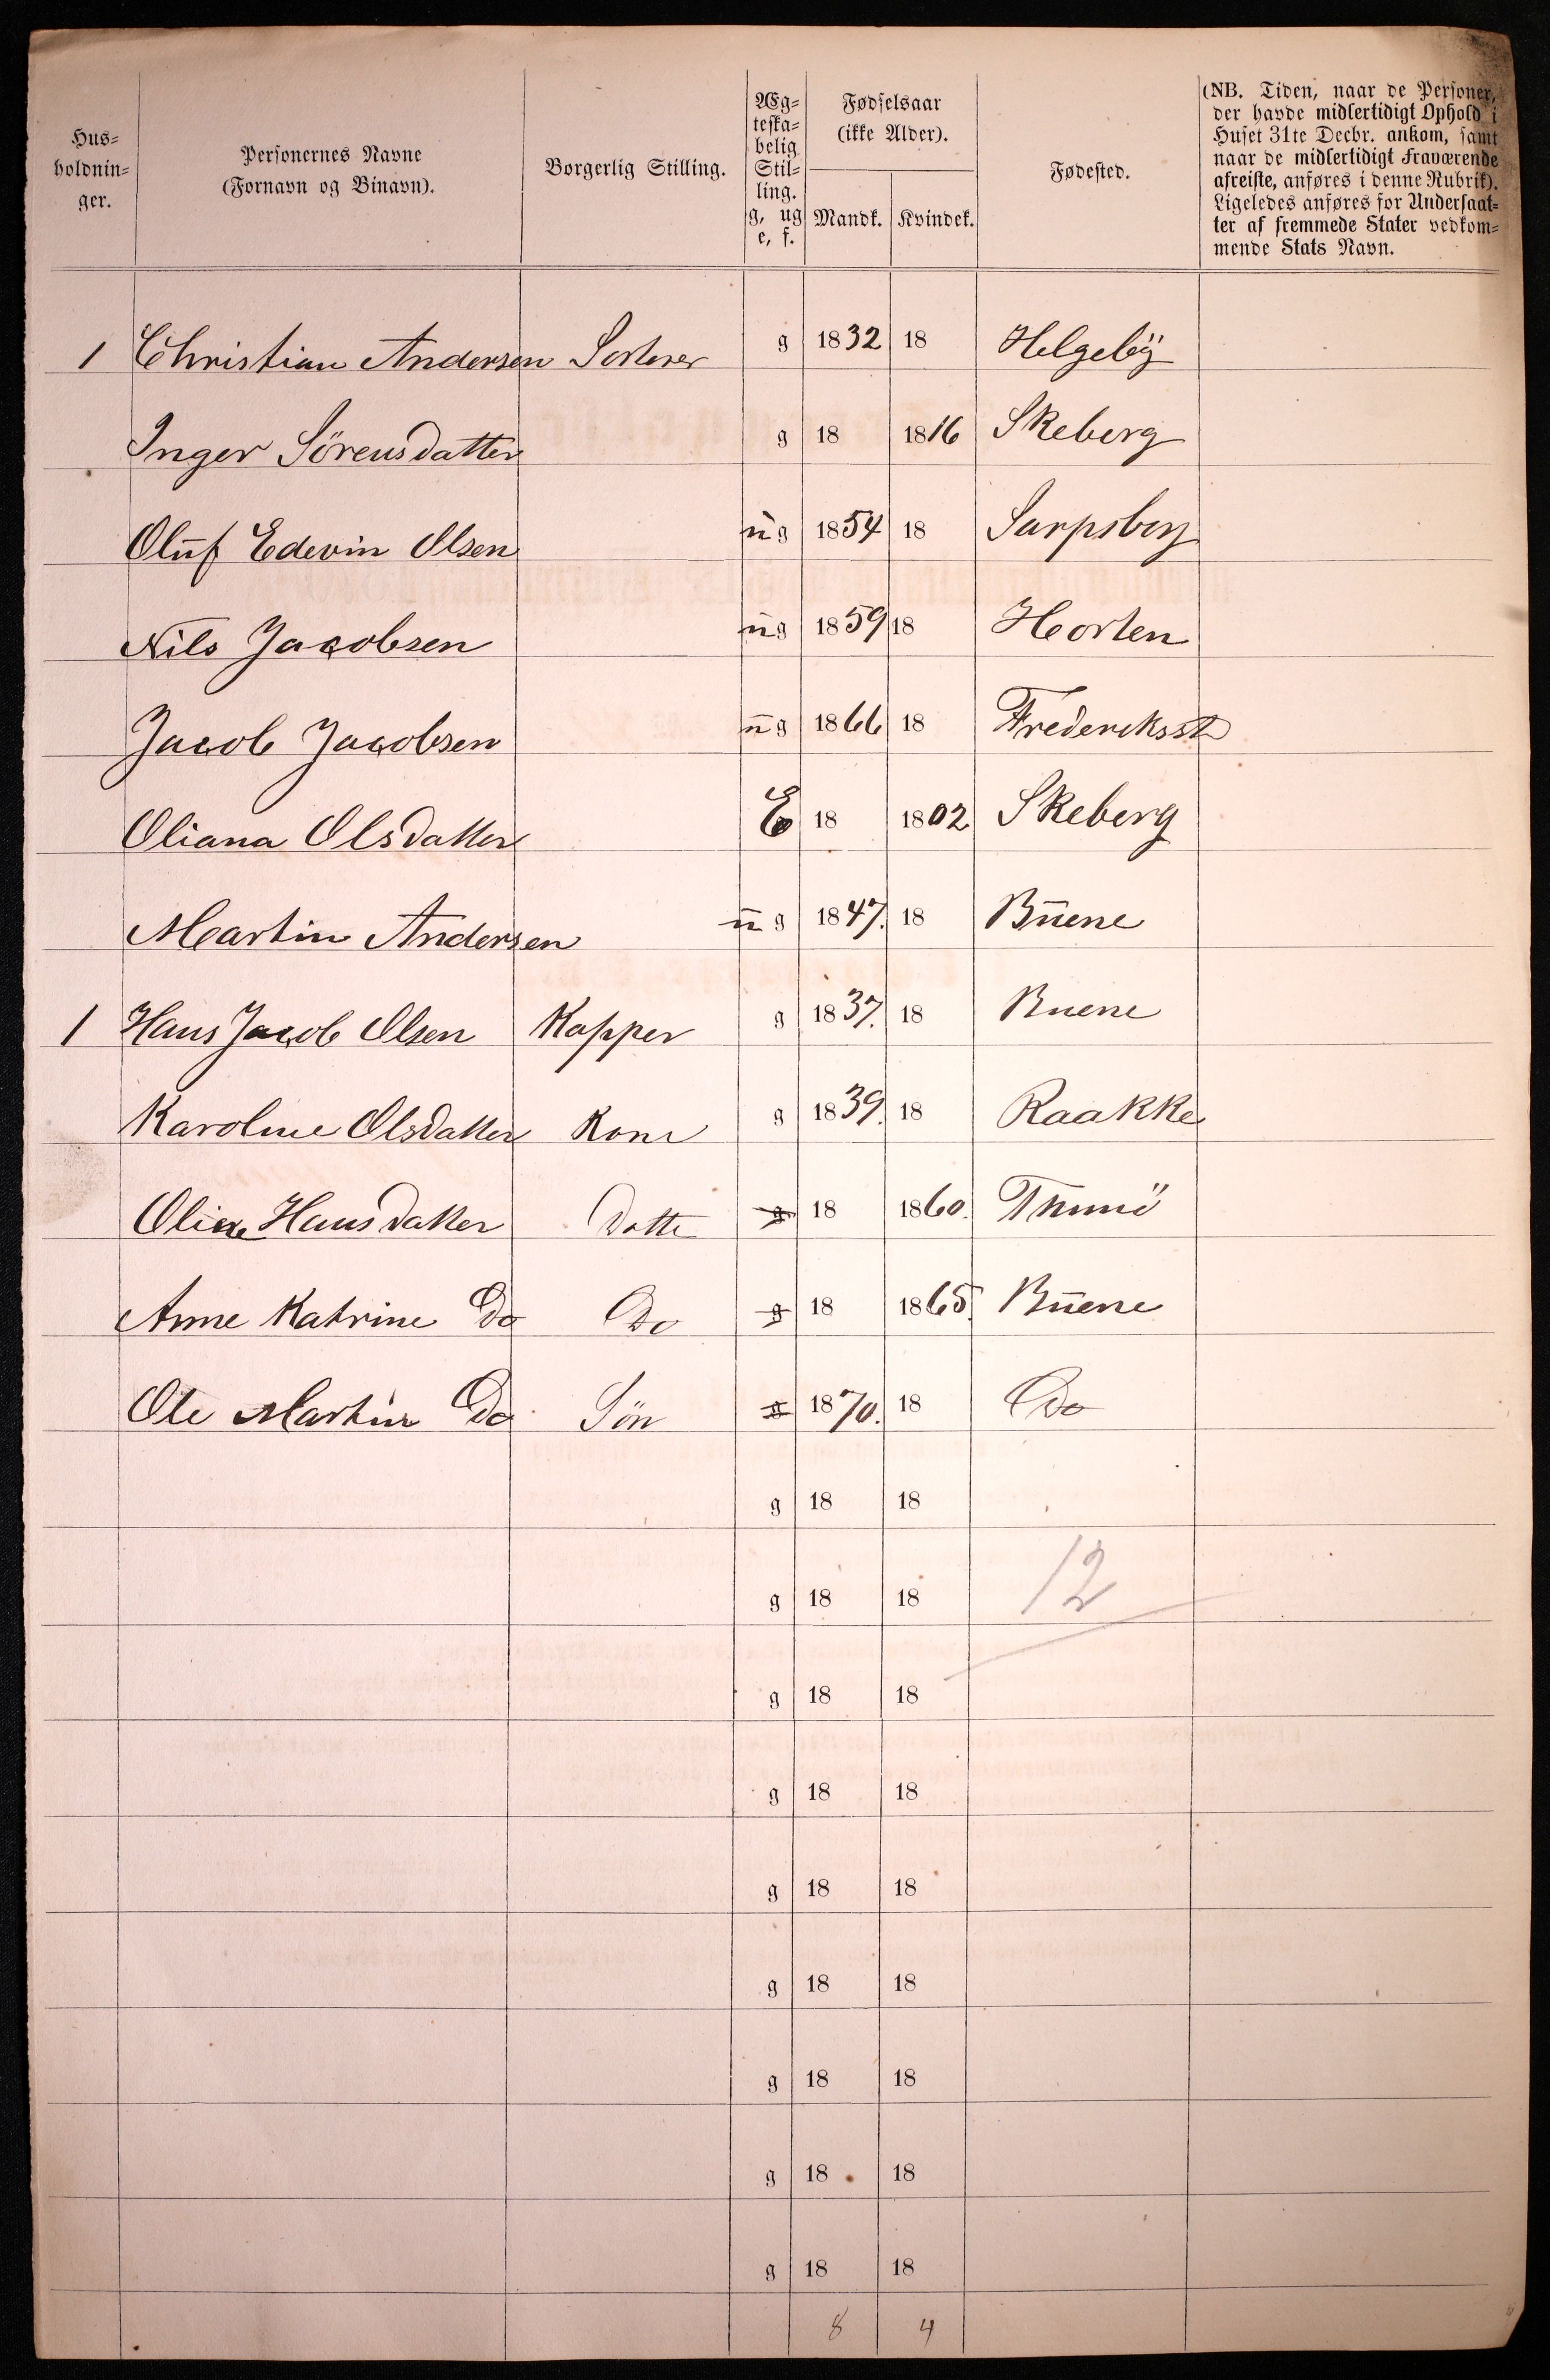 Hus-
holdnin-
ger.
Personernes Navne
(Fornavn og Binavn).
Borgerlig Stilling.
Æg-
teska-
belig
Stil-
ling.
g, ug
e, f.
Fødselsaar
(ikke Alder).
Mandk. Kvindek.
Fødested.
(NB. Tiden, naar de Personer,
der havde midlertidigt Ophold i
Huset 31te Decbr. ankom, samt
naar de midlertidigt Fraværende
afreiste, anføres i denne Rubrik).
Ligeledes anføres for Undersaat-
ter af fremmede Stater vedkom-
mende Stats Navn.
1 Christian Andersen Sorterer g 1832 18 Helgebÿ
Inger Sörensdatter g 18 1816 Skeberg
Oluf Edevin Olsen ug 1854 18 Sarpsborg
Nils Jacobsen ug 1859 18 Horten
Jacob Jacobsen ug 1866 18 Frederiksst
Oliana Olsdatter E 18 1802 Skeberg
Martin Andersen ug 1847. 18 Buene
1 Hans Jacob Olsen Kapper g 1837. 18 Buene
Karoline Olsdatter Kone g 1839. 18 Raakke
Oline Hansdatter Datte g 18 1860.
Anne Katrine Do Do g 18 1865. Buene
Ole Martin Do Sön g 1870. 18 Do
g 18 18
g 18 18 12
g 18 18
g 18 18
g 18 18
g 18 18
g 18 18
g 18 18
g 18 18
8 4